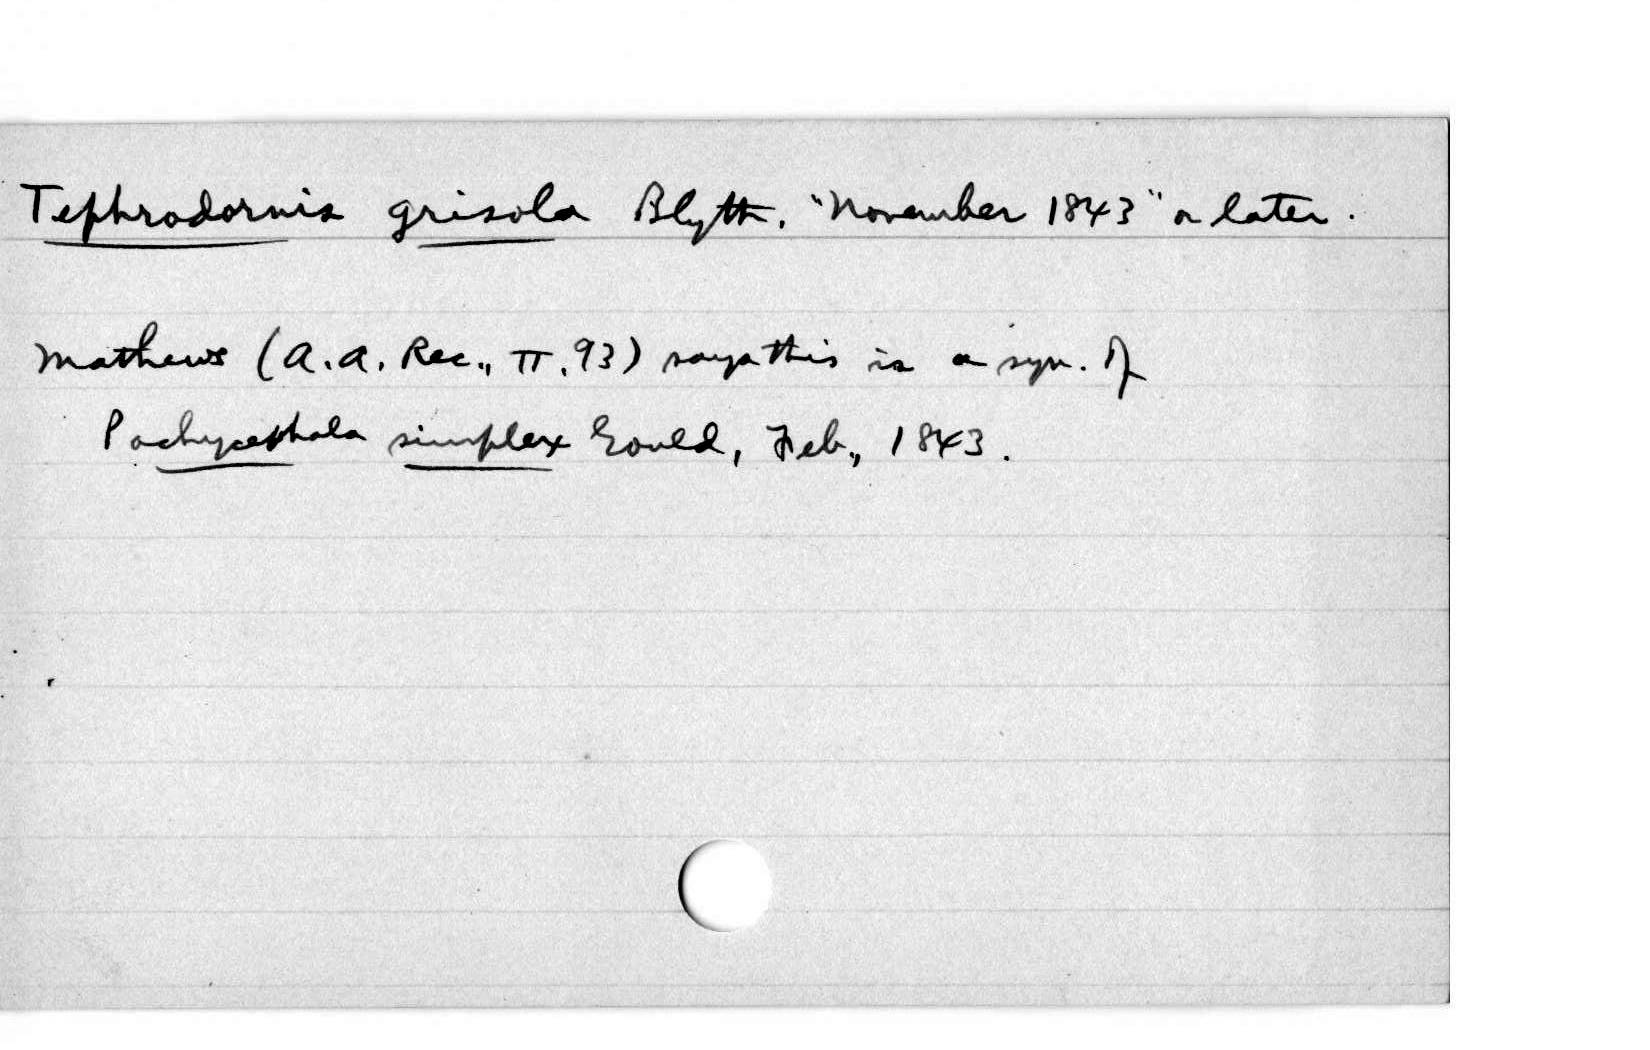 Tephrodornis grisola Blyth. "November 1843" or later.
Mathews (A.A. Rec., II, 93) says this is a syn. of
Pachycephala simplex Gould, Feb., 1843.